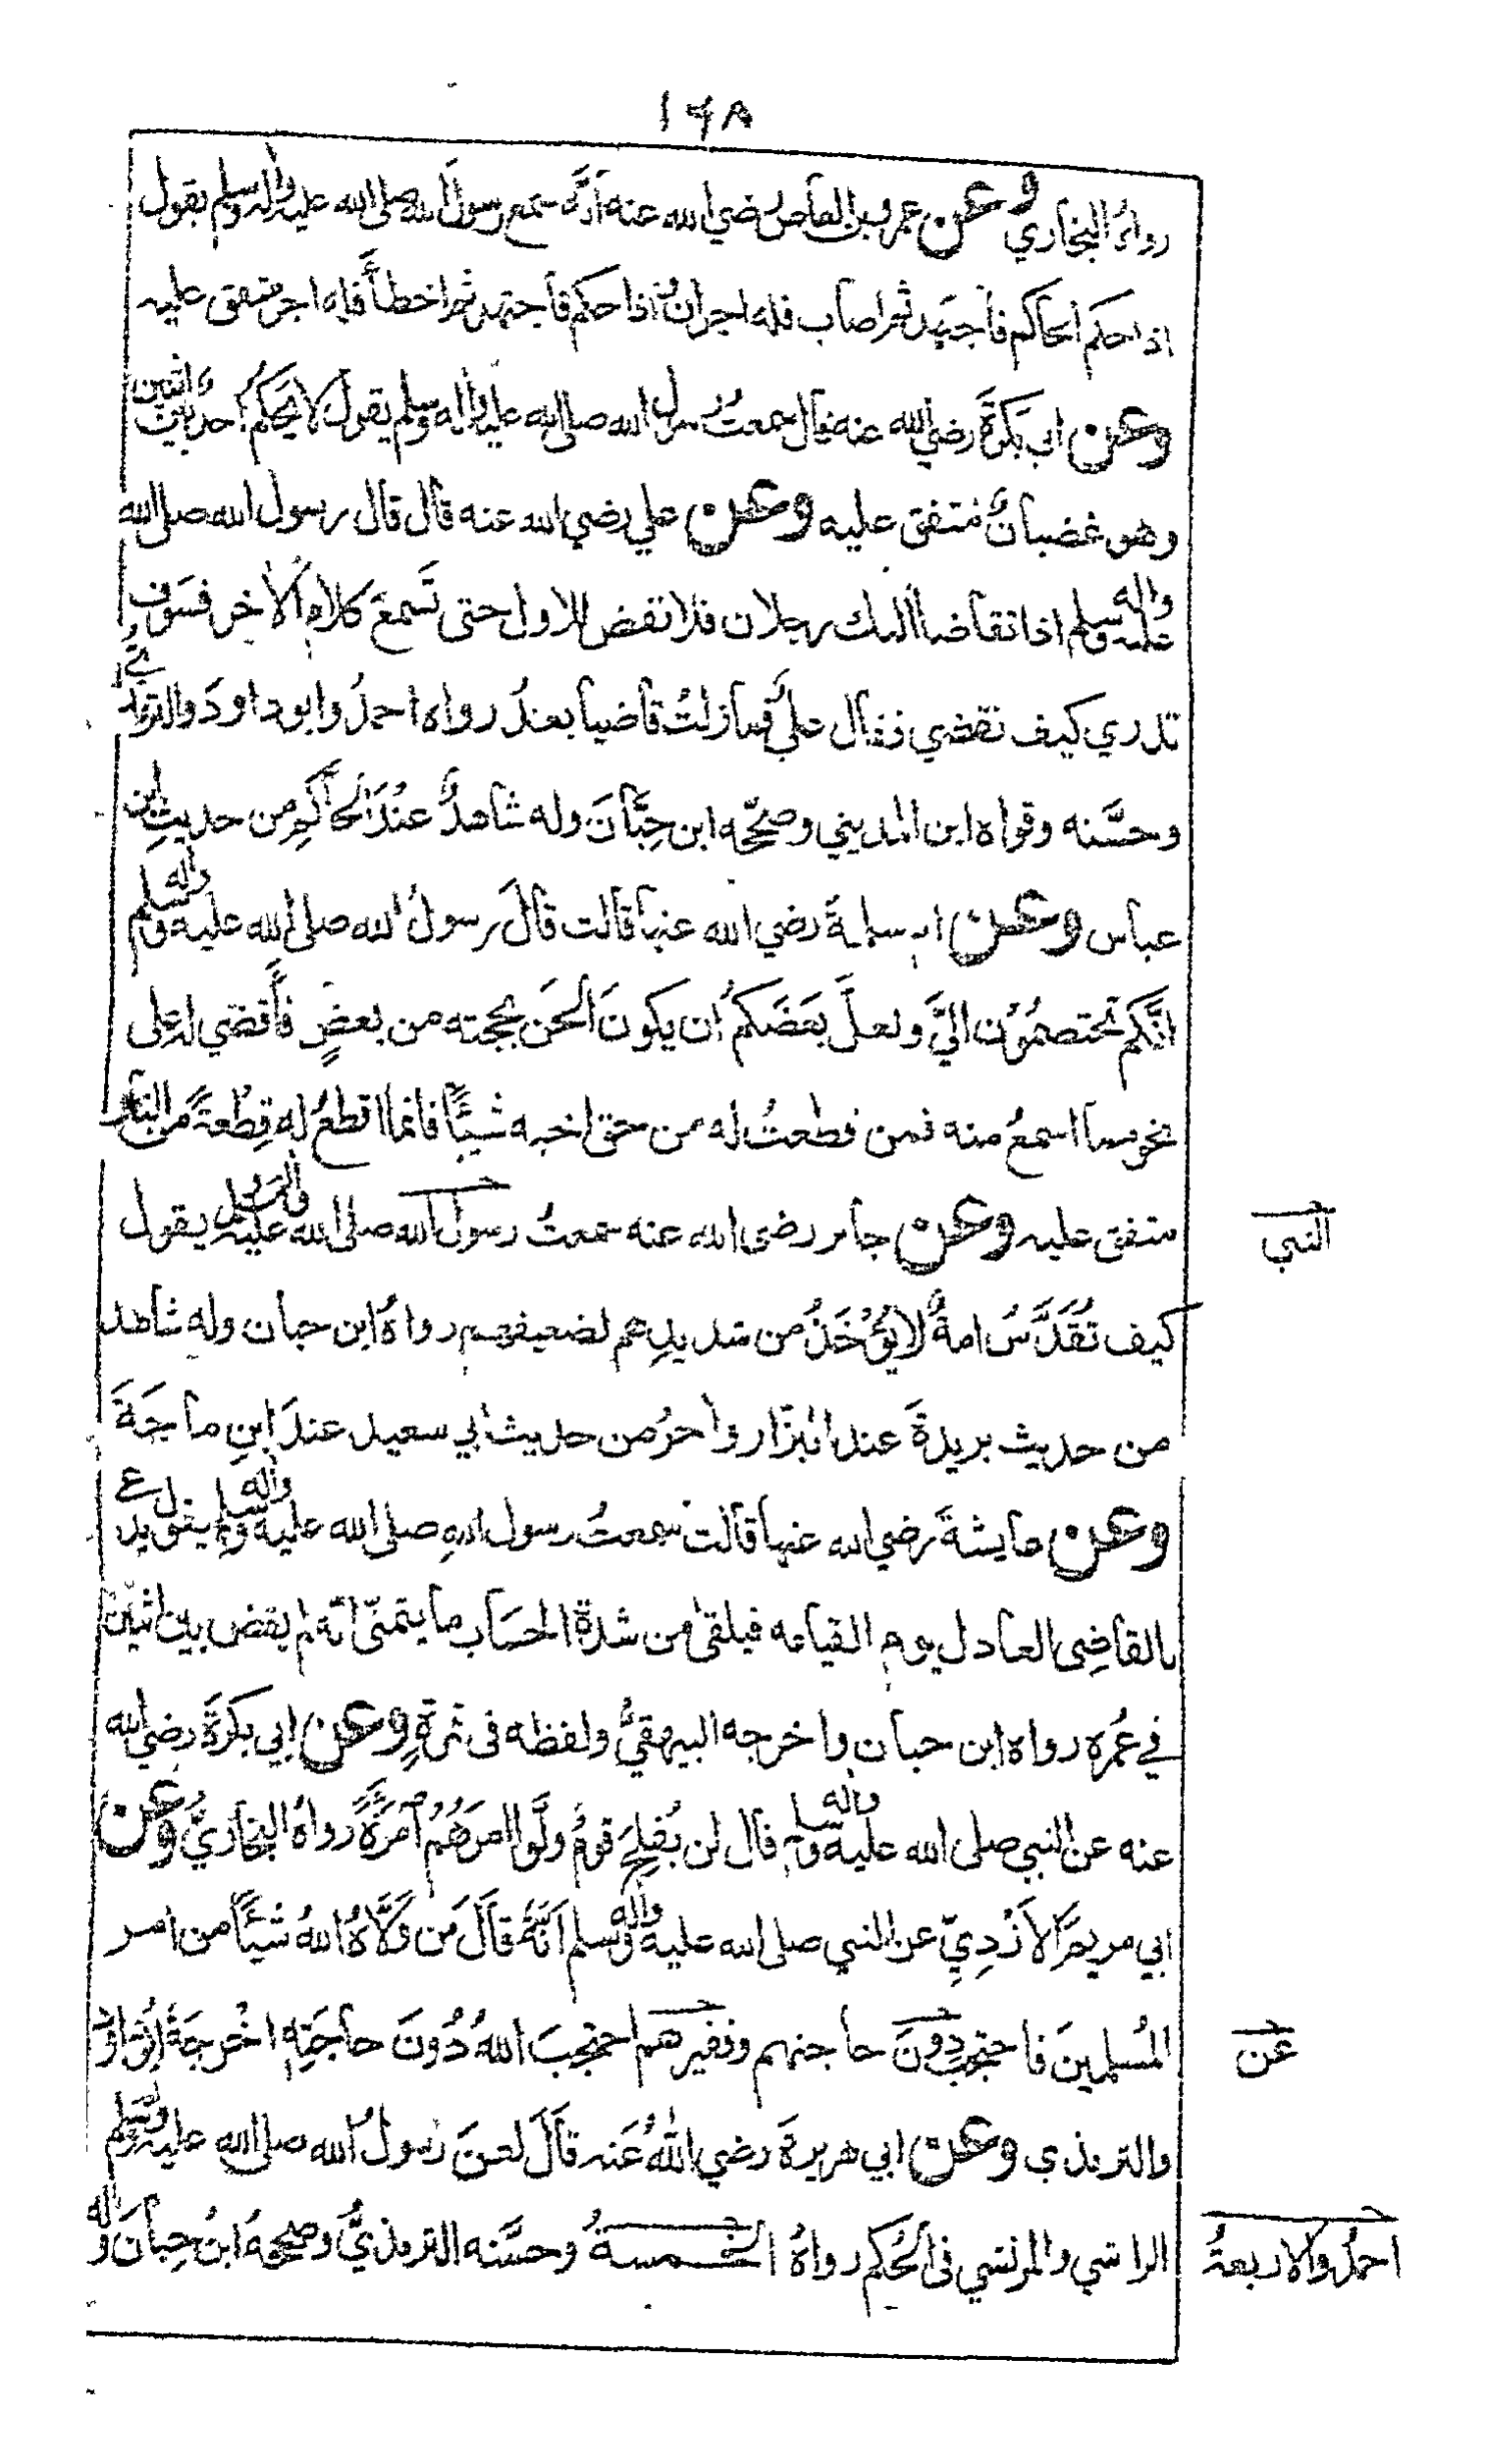 ١٤٨
رواه البخاري وعن عمرو بن العاص رضي الله عنه أنه سمع رسول الله صلى الله عليه وآله وسلم يقول
اذا حكم الحاكم فاجتهد ثم اصاب فله اجران فاذا حكم فاجتهد ثم اخطأ فله اجر متفق عليه
وعن ابي بكرة رضي الله عنه قال سمعت رسول الله صلى الله عليه وآله وسلم يقول لا يحكم احد بين اثنين
وهو غضبان متفق عليه وعن علي رضي الله عنه قال قال رسول الله صلى الله
عليه وآله وسلم اذا تقاضا اليك رجلان فلا تقض للاول حتى تسمع كلام الآخر فسوف
تدري كيف تقضي فقال علي فما زلت قاضيا بعد رواه احمد وابو داود والترمذي
وحسّنه وقواه ابن المديني وصححه ابن حبّان وله شاهد عند الحاكم من حديث ابن
عباس وعن ام سلمة رضي الله عنها قالت قال رسول الله صلى الله عليه وآله وسلم
انكم تختصمون اليّ ولعلّ بعضكم ان يكون الحن بحجته من بعض فأقضي له على
نحو مما اسمع منه فمن قطعت له من حق اخيه شيئًا فانما اقطع له قطعة من النار
متفق عليه وعن جابر رضى الله عنه سمعت رسول الله صلى الله عليه وآله وسلم يقول
النبي
كيف تُقَدَّسُ امةٌ لا يُؤْخَذُ من شديدهم لضعيفهم رواه ابن حبان وله شاهد
من حديث بريدة عند البزّار وآخر من حديث ابي سعيد عند ابن ماجة
وعن عايشة رضي الله عنها قالت سمعت رسول الله صلى الله عليه وآله وسلم يقول يدع
بالقاضى العادل يوم القيامه فيلقى من شدة الحساب ما يتمنّى انه لم يقض بين اثنين
في عمره رواه ابن حبان واخرجه البيهقي ولفظه فى تمرة وعن ابي بكرة رضي الله
عنه عن النبي صلى الله عليه وآله وسلم قال لن يُفلِحَ قوم ولّوا امرَهُمُ امرَأةً رواه البخاريّ وعن
ابي مريم الأزديّ عن النبي صلى الله عليه وآله وسلم أنّه قال من ولّاهُ اللهُ شيئًا من امر
المسلمين فاحتجب دون حاجتهم وفقيرهم احتجب الله دُونَ حاجَتِه اخرجه ابو داود
عن
والترمذي وعن ابي هريرة رضي الله عنه قال لعن رسول الله صلى الله عليه وآله وسلم
الراشي والمرتشي فى الحكم رواه الخمسة وحسّنه الترمذيّ وصححه ابن حبان وله
احمد والاربعة